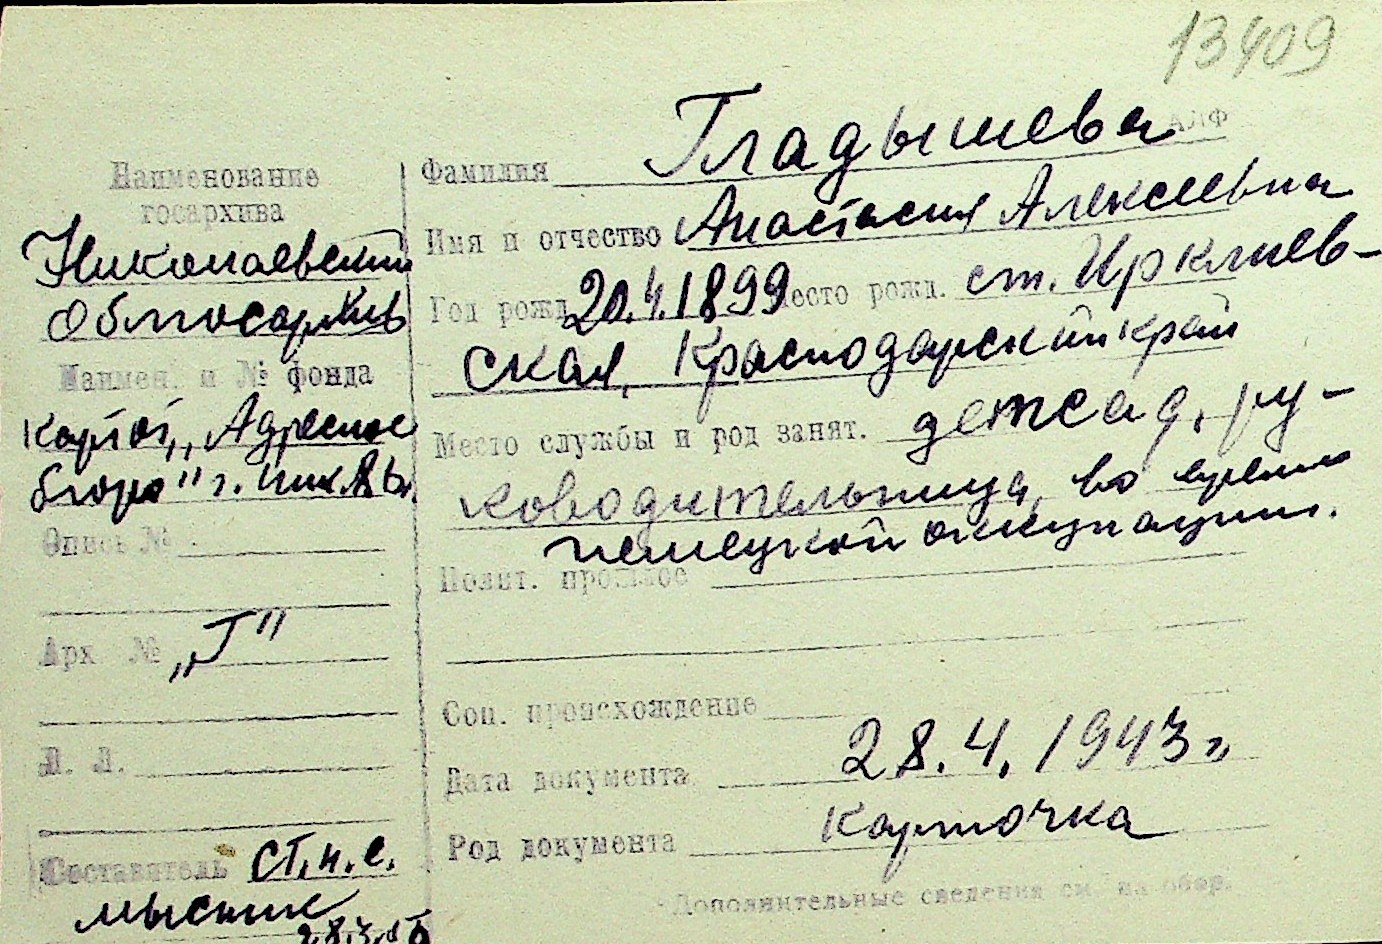 13409
АЛФ
Наименование
госархива
Николаевский
Облгосархив
Наимен. и № фонда
Картот. „Адресное
бюро" г. Ник.
Опись №
Арх №  „Г"
Л. Л.
Составитель ст.н.с.
Мысник
Фамилия Гладышева
Имя и отчество Анастасия Алексеевна
Год рожд. 20.4.1899 Место рожд. ст. Ирклиев-
ская, Краснодарский край
Место службы и род занят. детсад, ру-
ководительница, во время
немецкой оккупации.
Полит. прошлое
Соц. происхождение
Дата документа 28.4.1943 г.
Род документа карточка
Дополнительные сведения см. на обор.